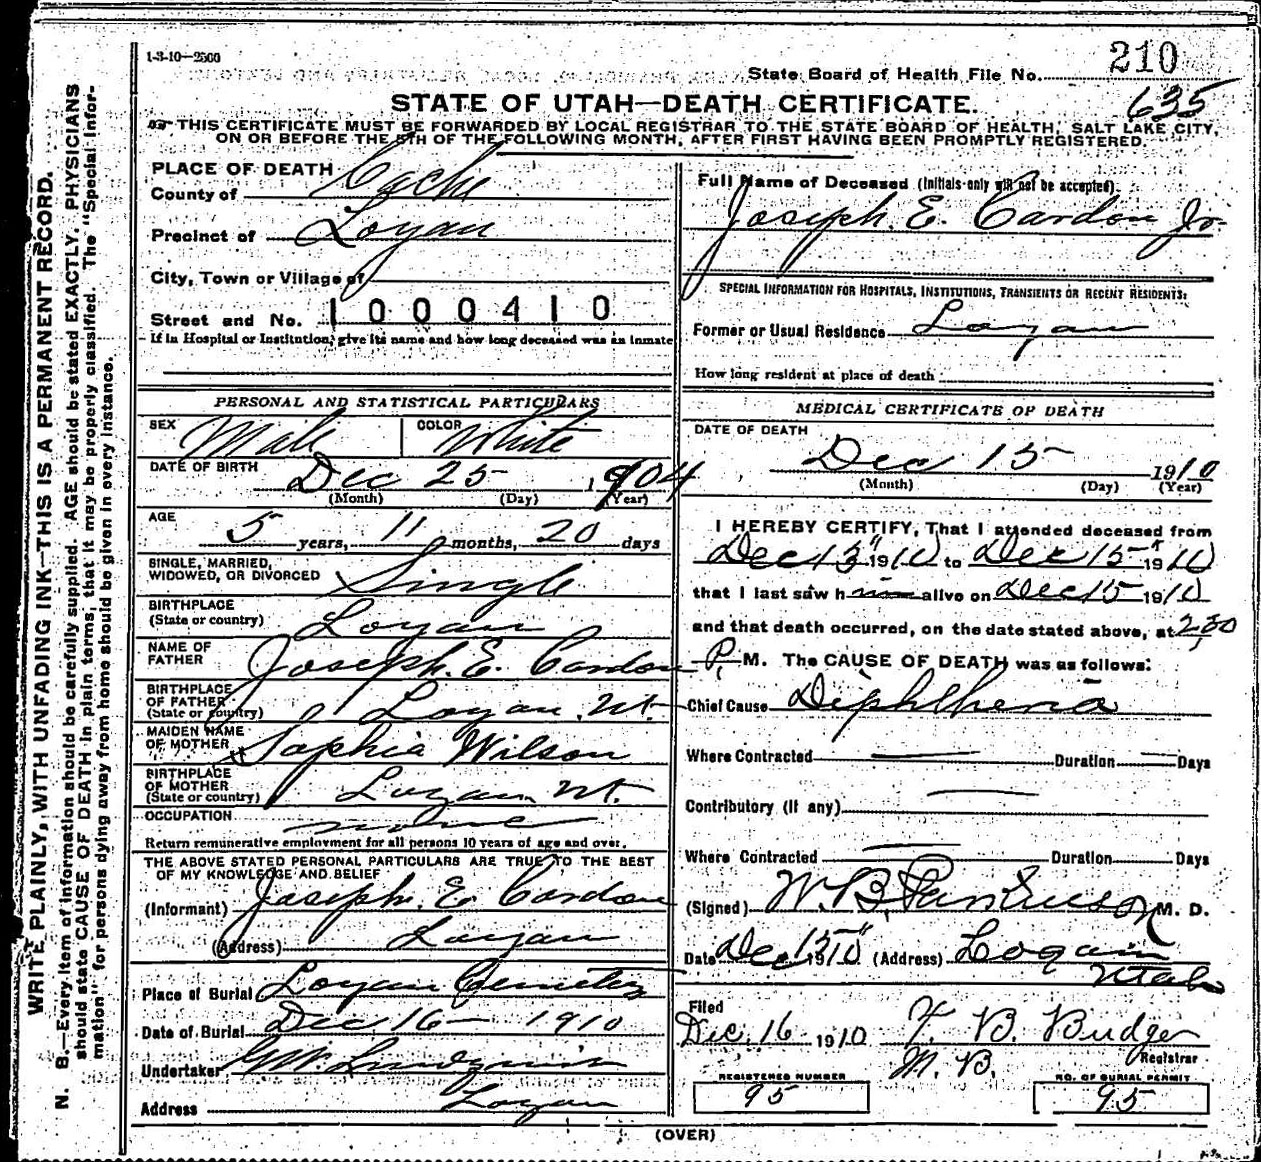 1-3-10—2500
State Board of Health File No. 210
635
STATE OF UTAH—DEATH CERTIFICATE.
THIS CERTIFICATE MUST BE FORWARDED BY LOCAL REGISTRAR TO THE STATE BOARD OF HEALTH, SALT LAKE CITY,
ON OR BEFORE THE 5TH OF THE FOLLOWING MONTH, AFTER FIRST HAVING BEEN PROMPTLY REGISTERED.
WRITE PLAINLY, WITH UNFADING INK—THIS IS A PERMANENT RECORD.
N. B.—Every item of information should be carefully supplied. AGE should be stated EXACTLY. PHYSICIANS
should state CAUSE OF DEATH in plain terms, that it may be properly classified. The "Special Infor-
mation" for persons dying away from home should be given in every instance.
PLACE OF DEATH
County of Cache
Precinct of Logan
City, Town or Village of
Street and No. 1000410
If in Hospital or Institution, give its name and how long deceased was an inmate
PERSONAL AND STATISTICAL PARTICULARS
SEX Male COLOR White
DATE OF BIRTH
Dec 25 1904
(Month) (Day) (Year)
AGE
5 years, 11 months, 20 days
SINGLE, MARRIED,
WIDOWED, OR DIVORCED Single
BIRTHPLACE
(State or country) Logan
NAME OF
FATHER Joseph. E. Cardon
BIRTHPLACE
OF FATHER
(State or country) Logan. Ut.
MAIDEN NAME
OF MOTHER Sophia Wilson
BIRTHPLACE
OF MOTHER
(State or country) Logan Ut.
OCCUPATION none
Return remunerative employment for all persons 10 years of age and over.
THE ABOVE STATED PERSONAL PARTICULARS ARE TRUE TO THE BEST
OF MY KNOWLEDGE AND BELIEF
(Informant) Joseph. E. Cardon
(Address) Logan
Place of Burial Logan Cemetery
Date of Burial Dec 16 - 1910
Undertaker
Address Logan
Full Name of Deceased (Initials only will not be accepted).
Joseph. E. Cardon Jr.
SPECIAL INFORMATION FOR HOSPITALS, INSTITUTIONS, TRANSIENTS OR RECENT RESIDENTS:
Former or Usual Residence Logan
How long resident at place of death
MEDICAL CERTIFICATE OF DEATH
DATE OF DEATH
Dec 15 1910
(Month) (Day) (Year)
I HEREBY CERTIFY, That I attended deceased from
Dec 13" 1910 to Dec 15" 1910
that I last saw h im alive on Dec 15 1910
and that death occurred, on the date stated above, at 2,30
P. M. The CAUSE OF DEATH was as follows:
Chief Cause Diphtheria
Where Contracted — Duration — Days
Contributory (if any) —
Where Contracted — Duration Days
(Signed) W. B. M. D.
Date Dec 15" 1910 (Address) Logan
Utah
Filed
Dec. 16 1910 B. Budge
Registrar
REGISTERED NUMBER
95
NO. OF BURIAL PERMIT
95
(OVER)